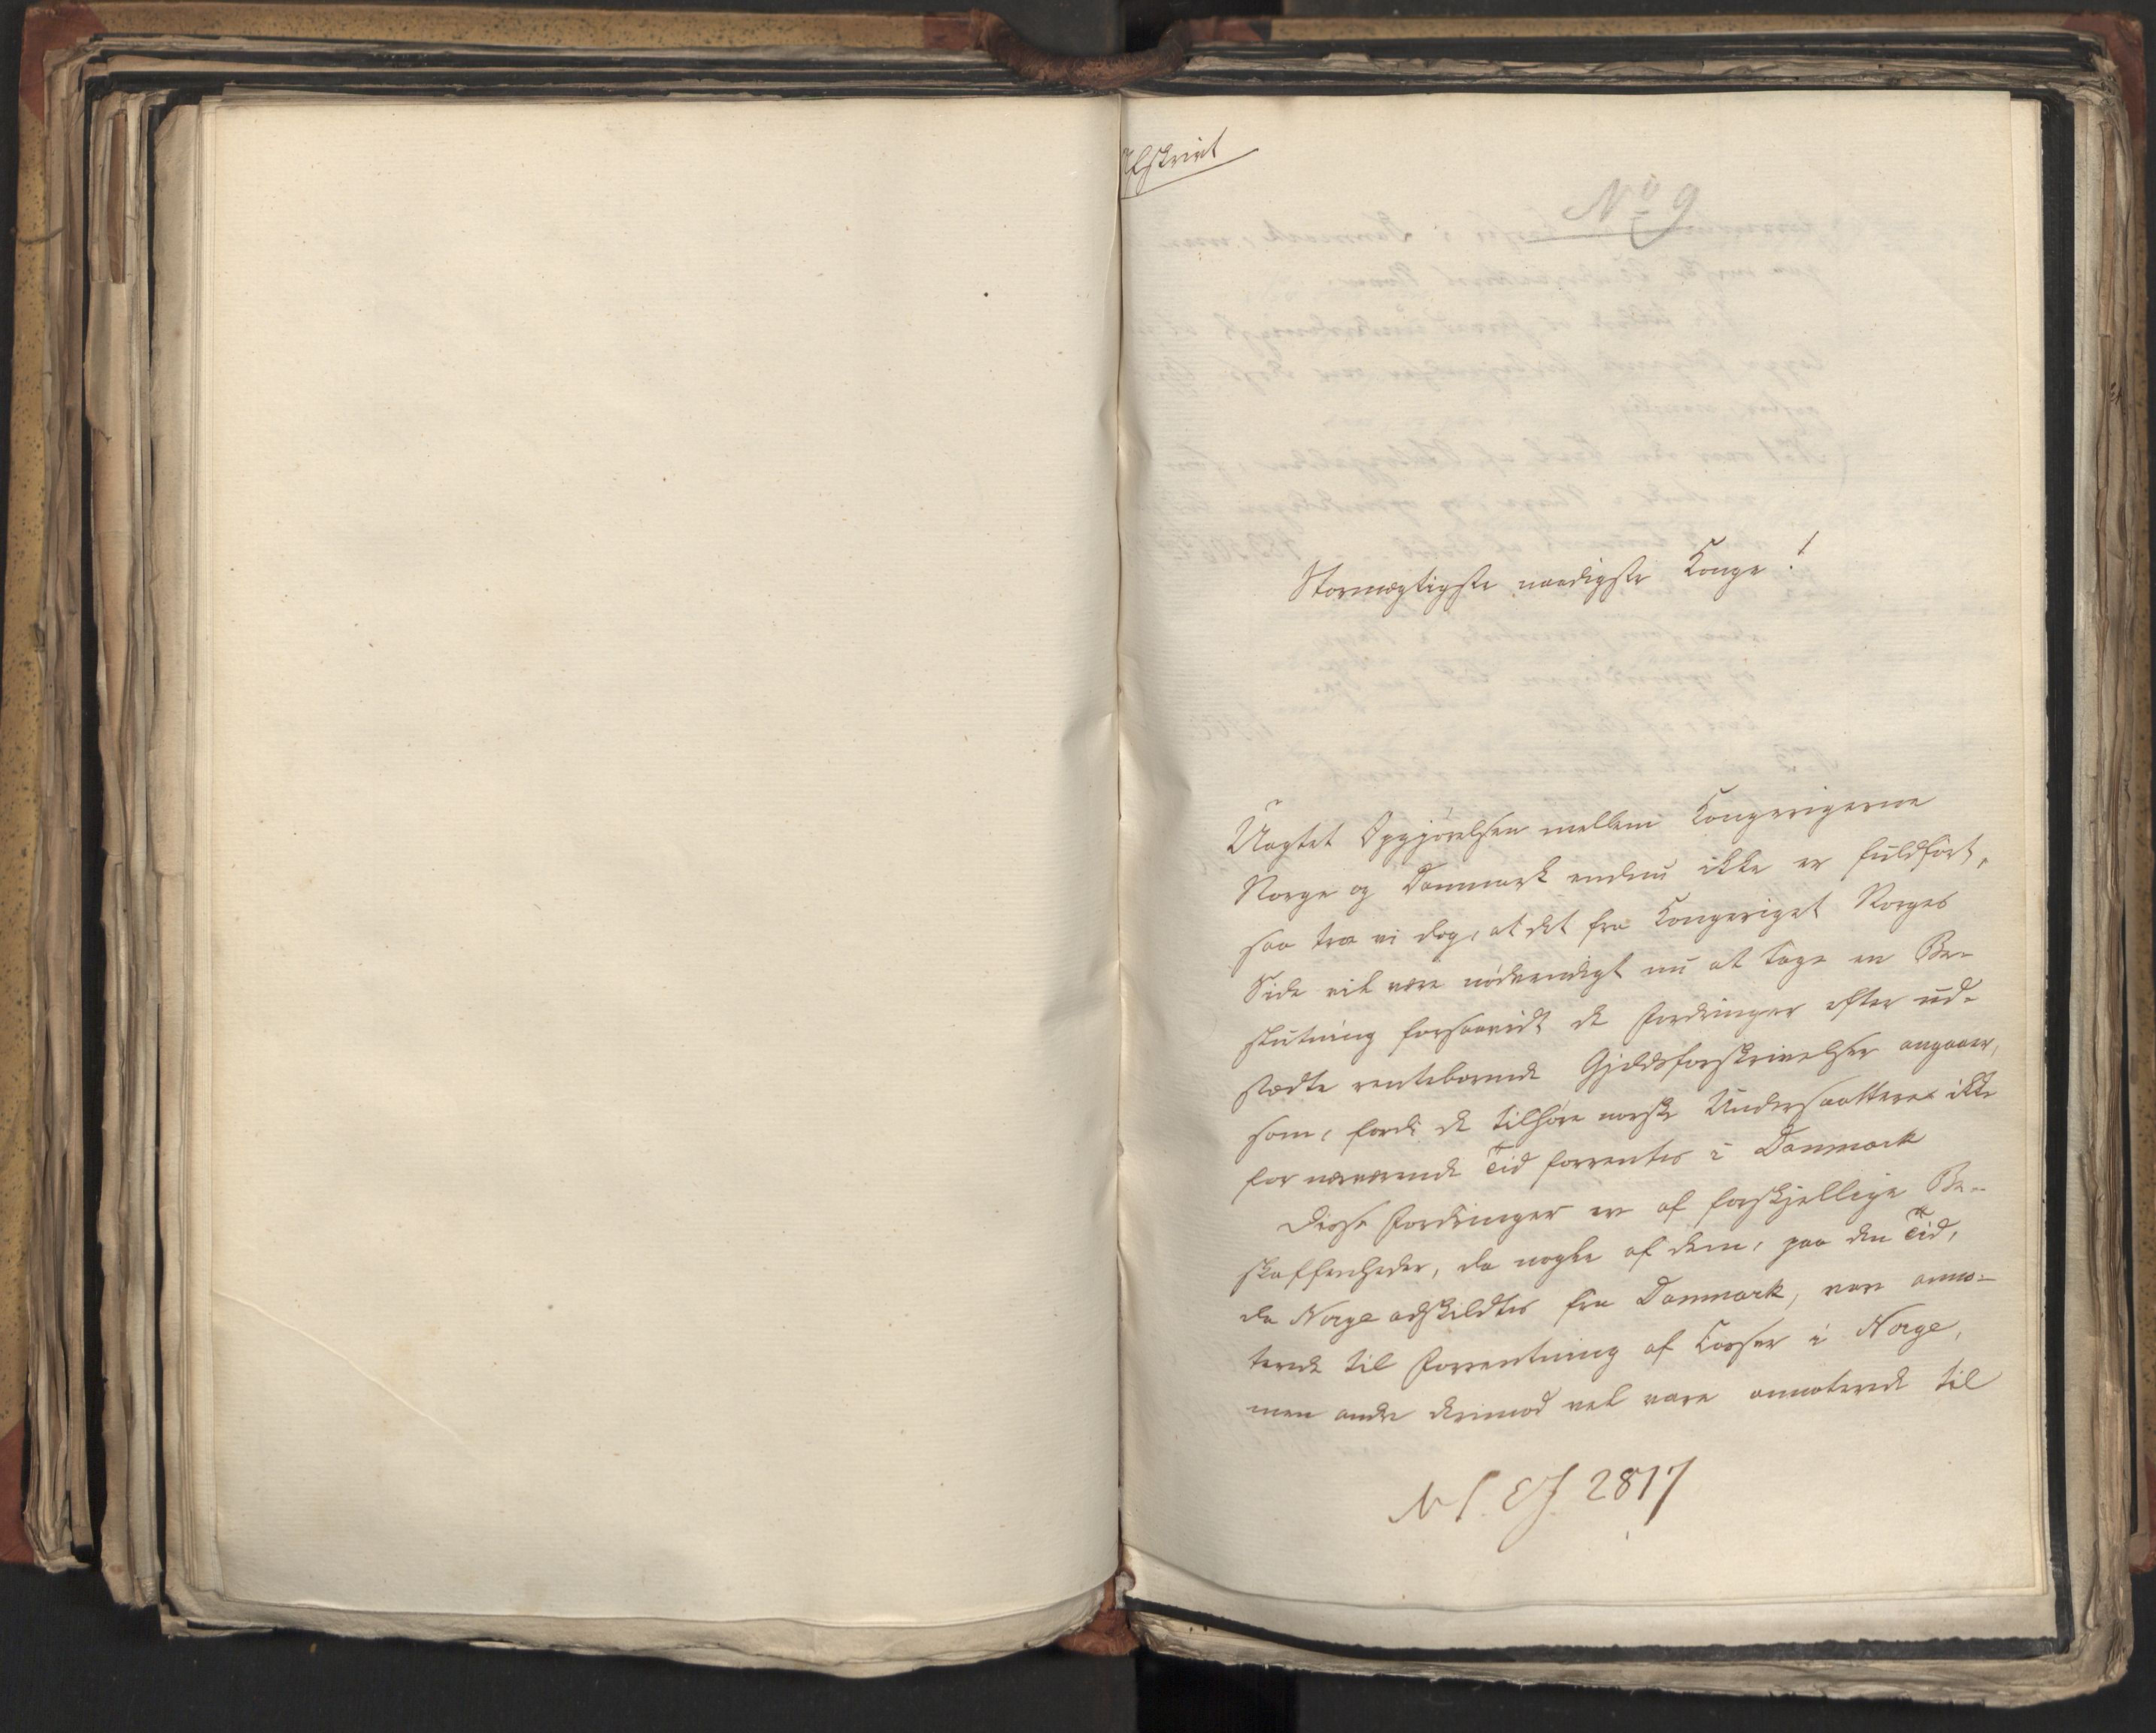 Afskrivt
No 9
Stormægtigste naadigste Konge!
Uagtet Opgjörelsen mellem Kongerigerne
Norge og Danmark endnu ikke er fuldfört,
saa troe vi dog, at det fra Kongeriget Norges
Side vil være nödvendigt nu at tage en Be-
slutning forsaavidt de Fordringer efter ud-
stædte rentebærende Gjeldsforskrivelser angaaer,
som, fordi de tilhöre norske Undersaatter ikke
for nærværende Tid forrentes i Danmark
Disse Fordringer ere af forskjellige Be-
skaffenheder, da nogle af dem, paa den Tid,
da Norge adskildtes fra Danmark, vare anno-
terede til Forrentning af Casser i Norge,
men andre derimod vel vare annoterede til
2817